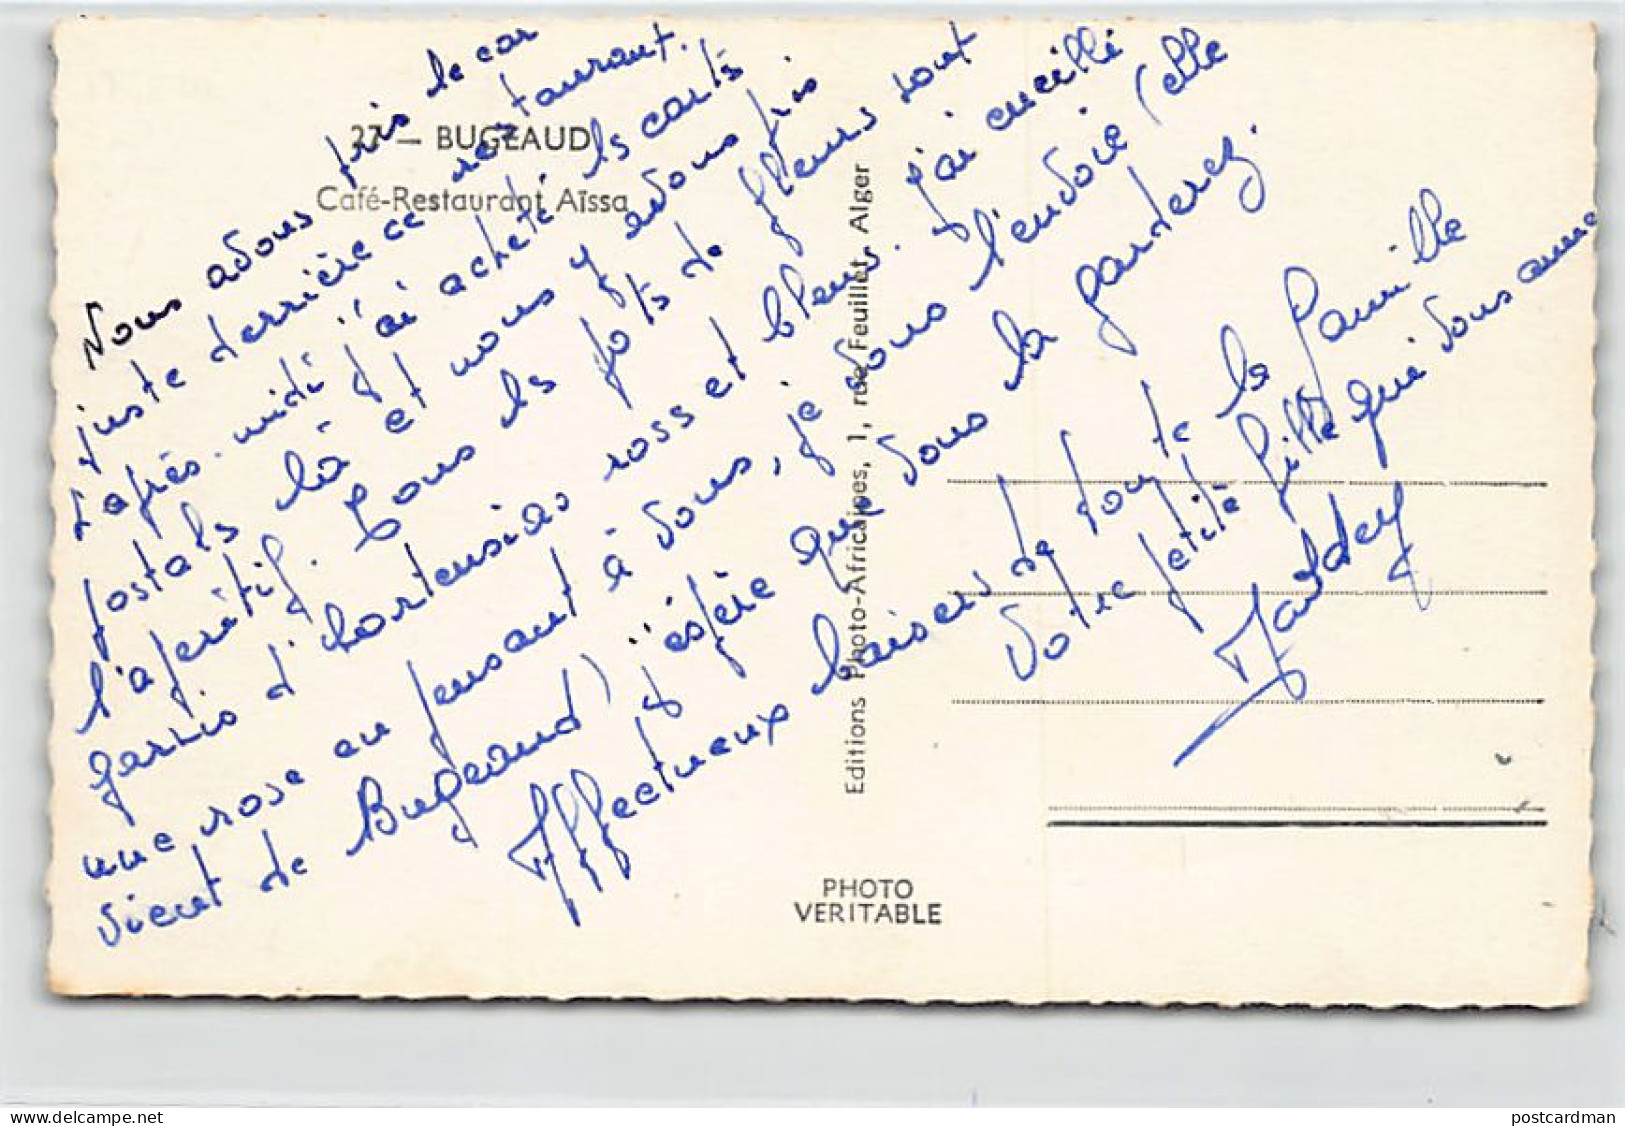 27 — BUGEAUD
Café-Restaurant Aïssa
Nous avons pris le car
juste derrière ce restaurant.
L'après-midi j'ai acheté les cartes
postales là et nous y avons pris
l'apéritif. Tous les pots de fleurs sont
garnis d'hortensias roses et bleus. J'ai cueilli
une rose en pensant à vous, je vous l'envoie (elle
vient de Bugeaud) j'espère que vous la garderez.
Affectueux baisers de toute la famille
Votre petite fille qui vous aime
Editions Photo-Africaines, 1, rue Feuillet, Alger
PHOTO
VERITABLE
www.delcampe.net
postcardman